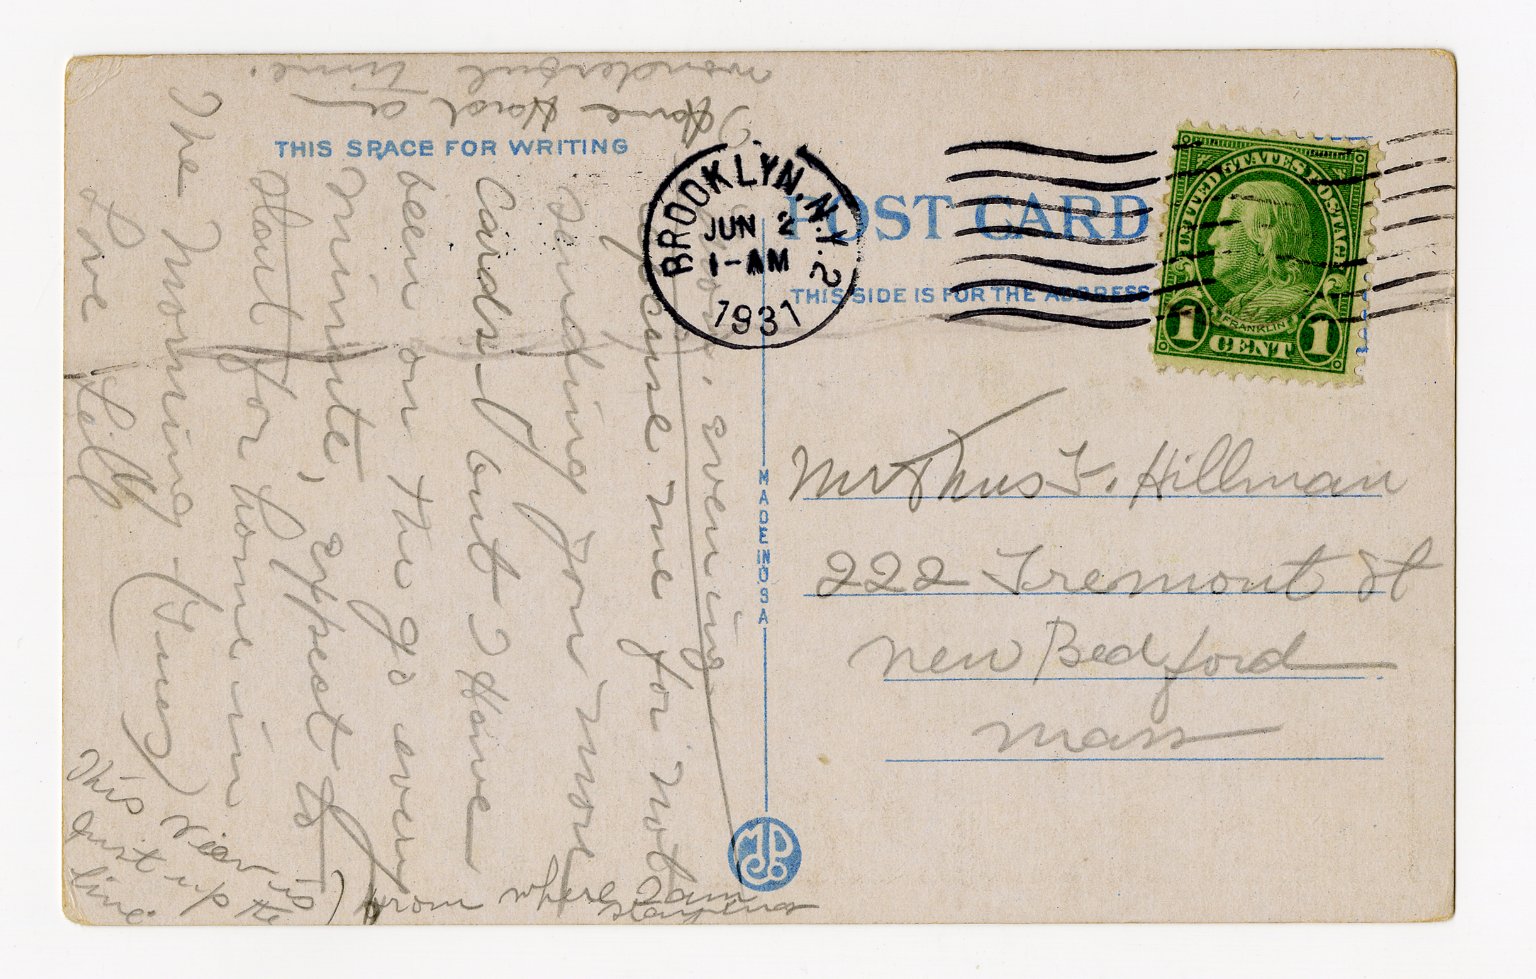 THIS SPACE FOR WRITING
POST CARD
THIS SIDE IS FOR THE ADDRESS
BROOKLYN, N.Y. 2
JUN 2
1-AM
1931
UNITED STATES POSTAGE
FRANKLIN
1 CENT 1
MADE IN USA
Mrs Thus F. Hillman
222 Tremont St
New Bedford
Mass
Mon. evening
Excuse me for not
sending you more
Cards, but I Have
been on the go every
Minute, expect to
start for home in
The Morning (Tues)
Love Lill
I Have Had a
wonderful time.
This view is
just up the
line
from where I am
staying